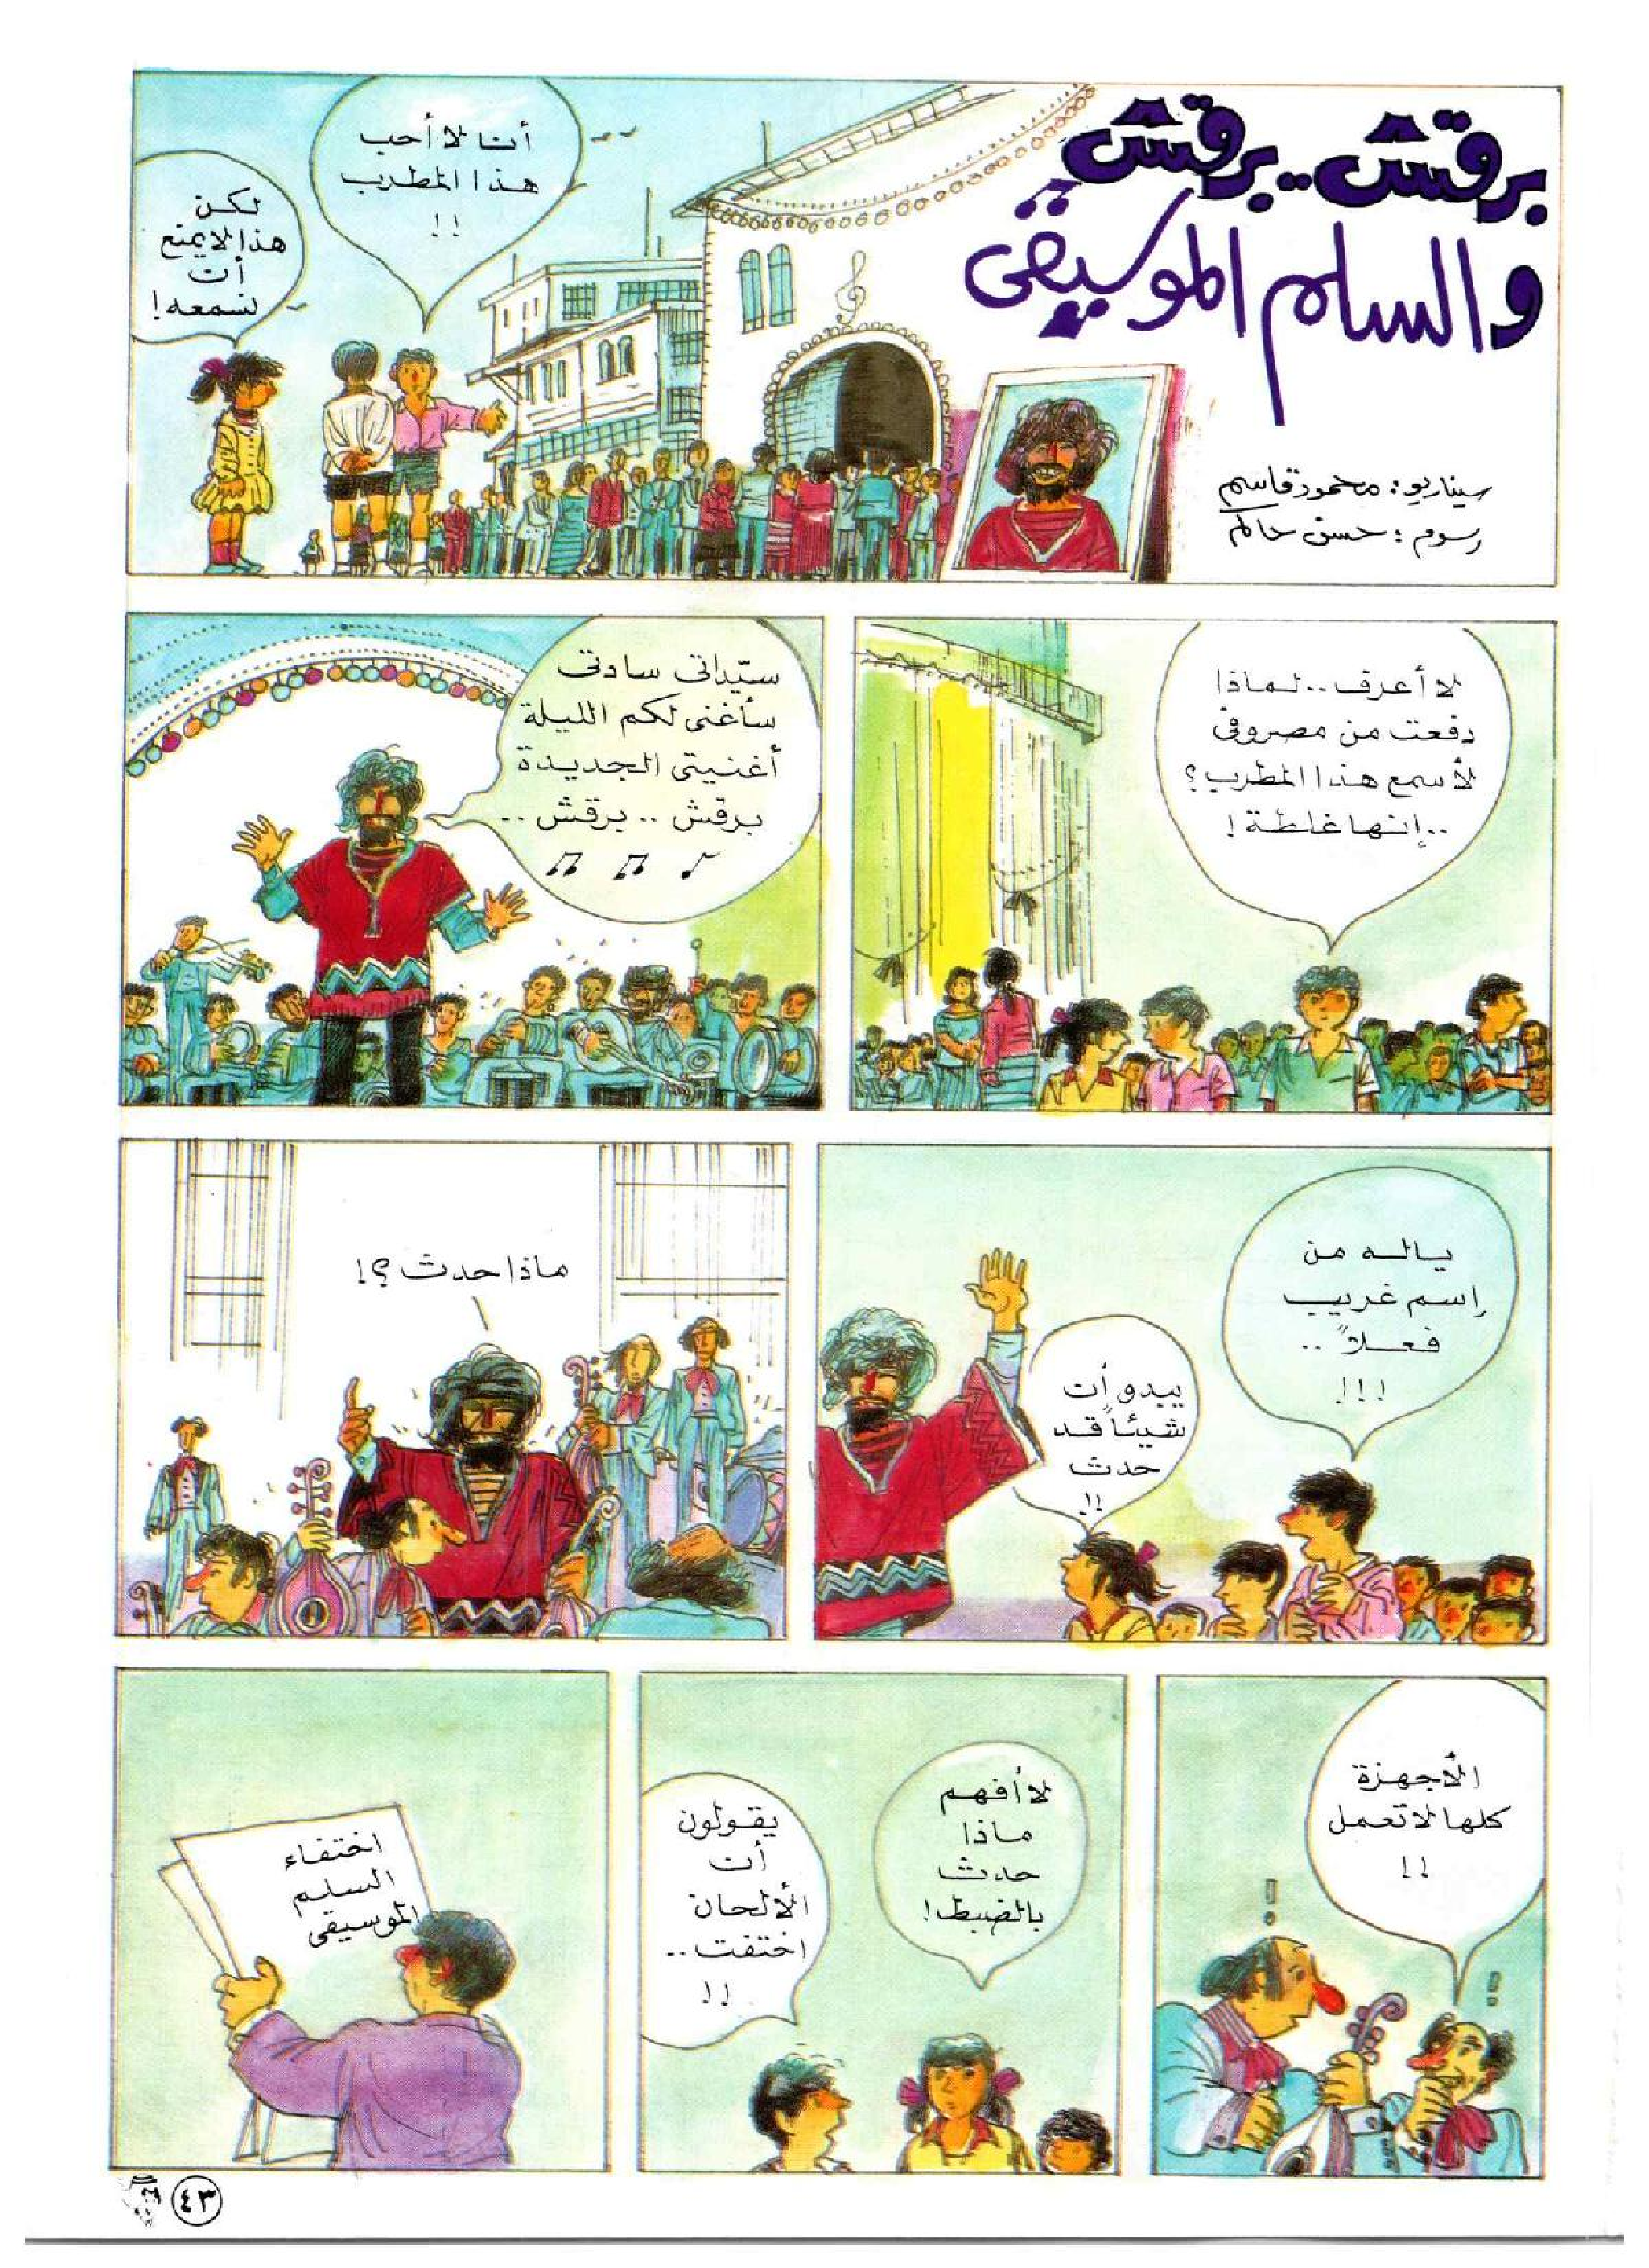 برقش.. برقش
والسلم الموسيقى
سيناريو: محمود قاسم
رسوم: حسن حاكم
أنا لا أحب
هذا المطرب
!!
لكن
هذا لا يمنع
أن
نسمعه!
لا أعرف.. لماذا
دفعت من مصروفى
لأسمع هذا المطرب؟
.. إنها غلطة!
سيّداتى سادتى
سأغنى لكم الليلة
أغنيتى الجديدة
برقش .. برقش ..
ياله من
إسم غريب
فعلاً ..
!!!
يبدو أن
شيئاً قد
حدث
!!
ماذا حدث؟!
الأجهزة
كلها لا تعمل
!!
!
!
لا أفهم
ماذا
حدث
بالضبط!
يقولون
أن
الألحان
اختفت..
!!
اختفاء
السلم
الموسيقى
٤٣